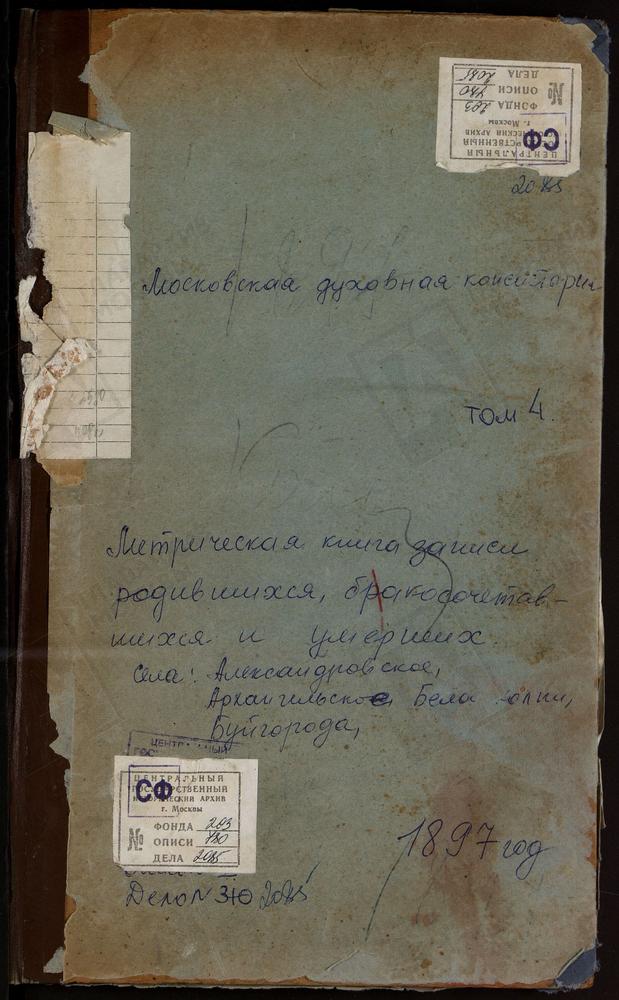 ЦЕНТРАЛЬНЫЙ
г. Москвы
СФ
№
ФОНДА 203
ОПИСИ 780
ДЕЛА 2085
2085
Московская духовная консистория
том 4.
Метрическая книга записи
родившихся, бракосочетав-
шихся и умерших
села: Александровское,
Архангильское Бела
Буйгорода,
ЦЕНТРАЛЬНЫЙ
ГОСУДАРСТВЕННЫЙ
ИСТОРИЧЕСКИЙ АРХИВ
г. Москвы
СФ
№
ФОНДА 203
ОПИСИ 780
ДЕЛА 2085
1897 год
Дело № 2085